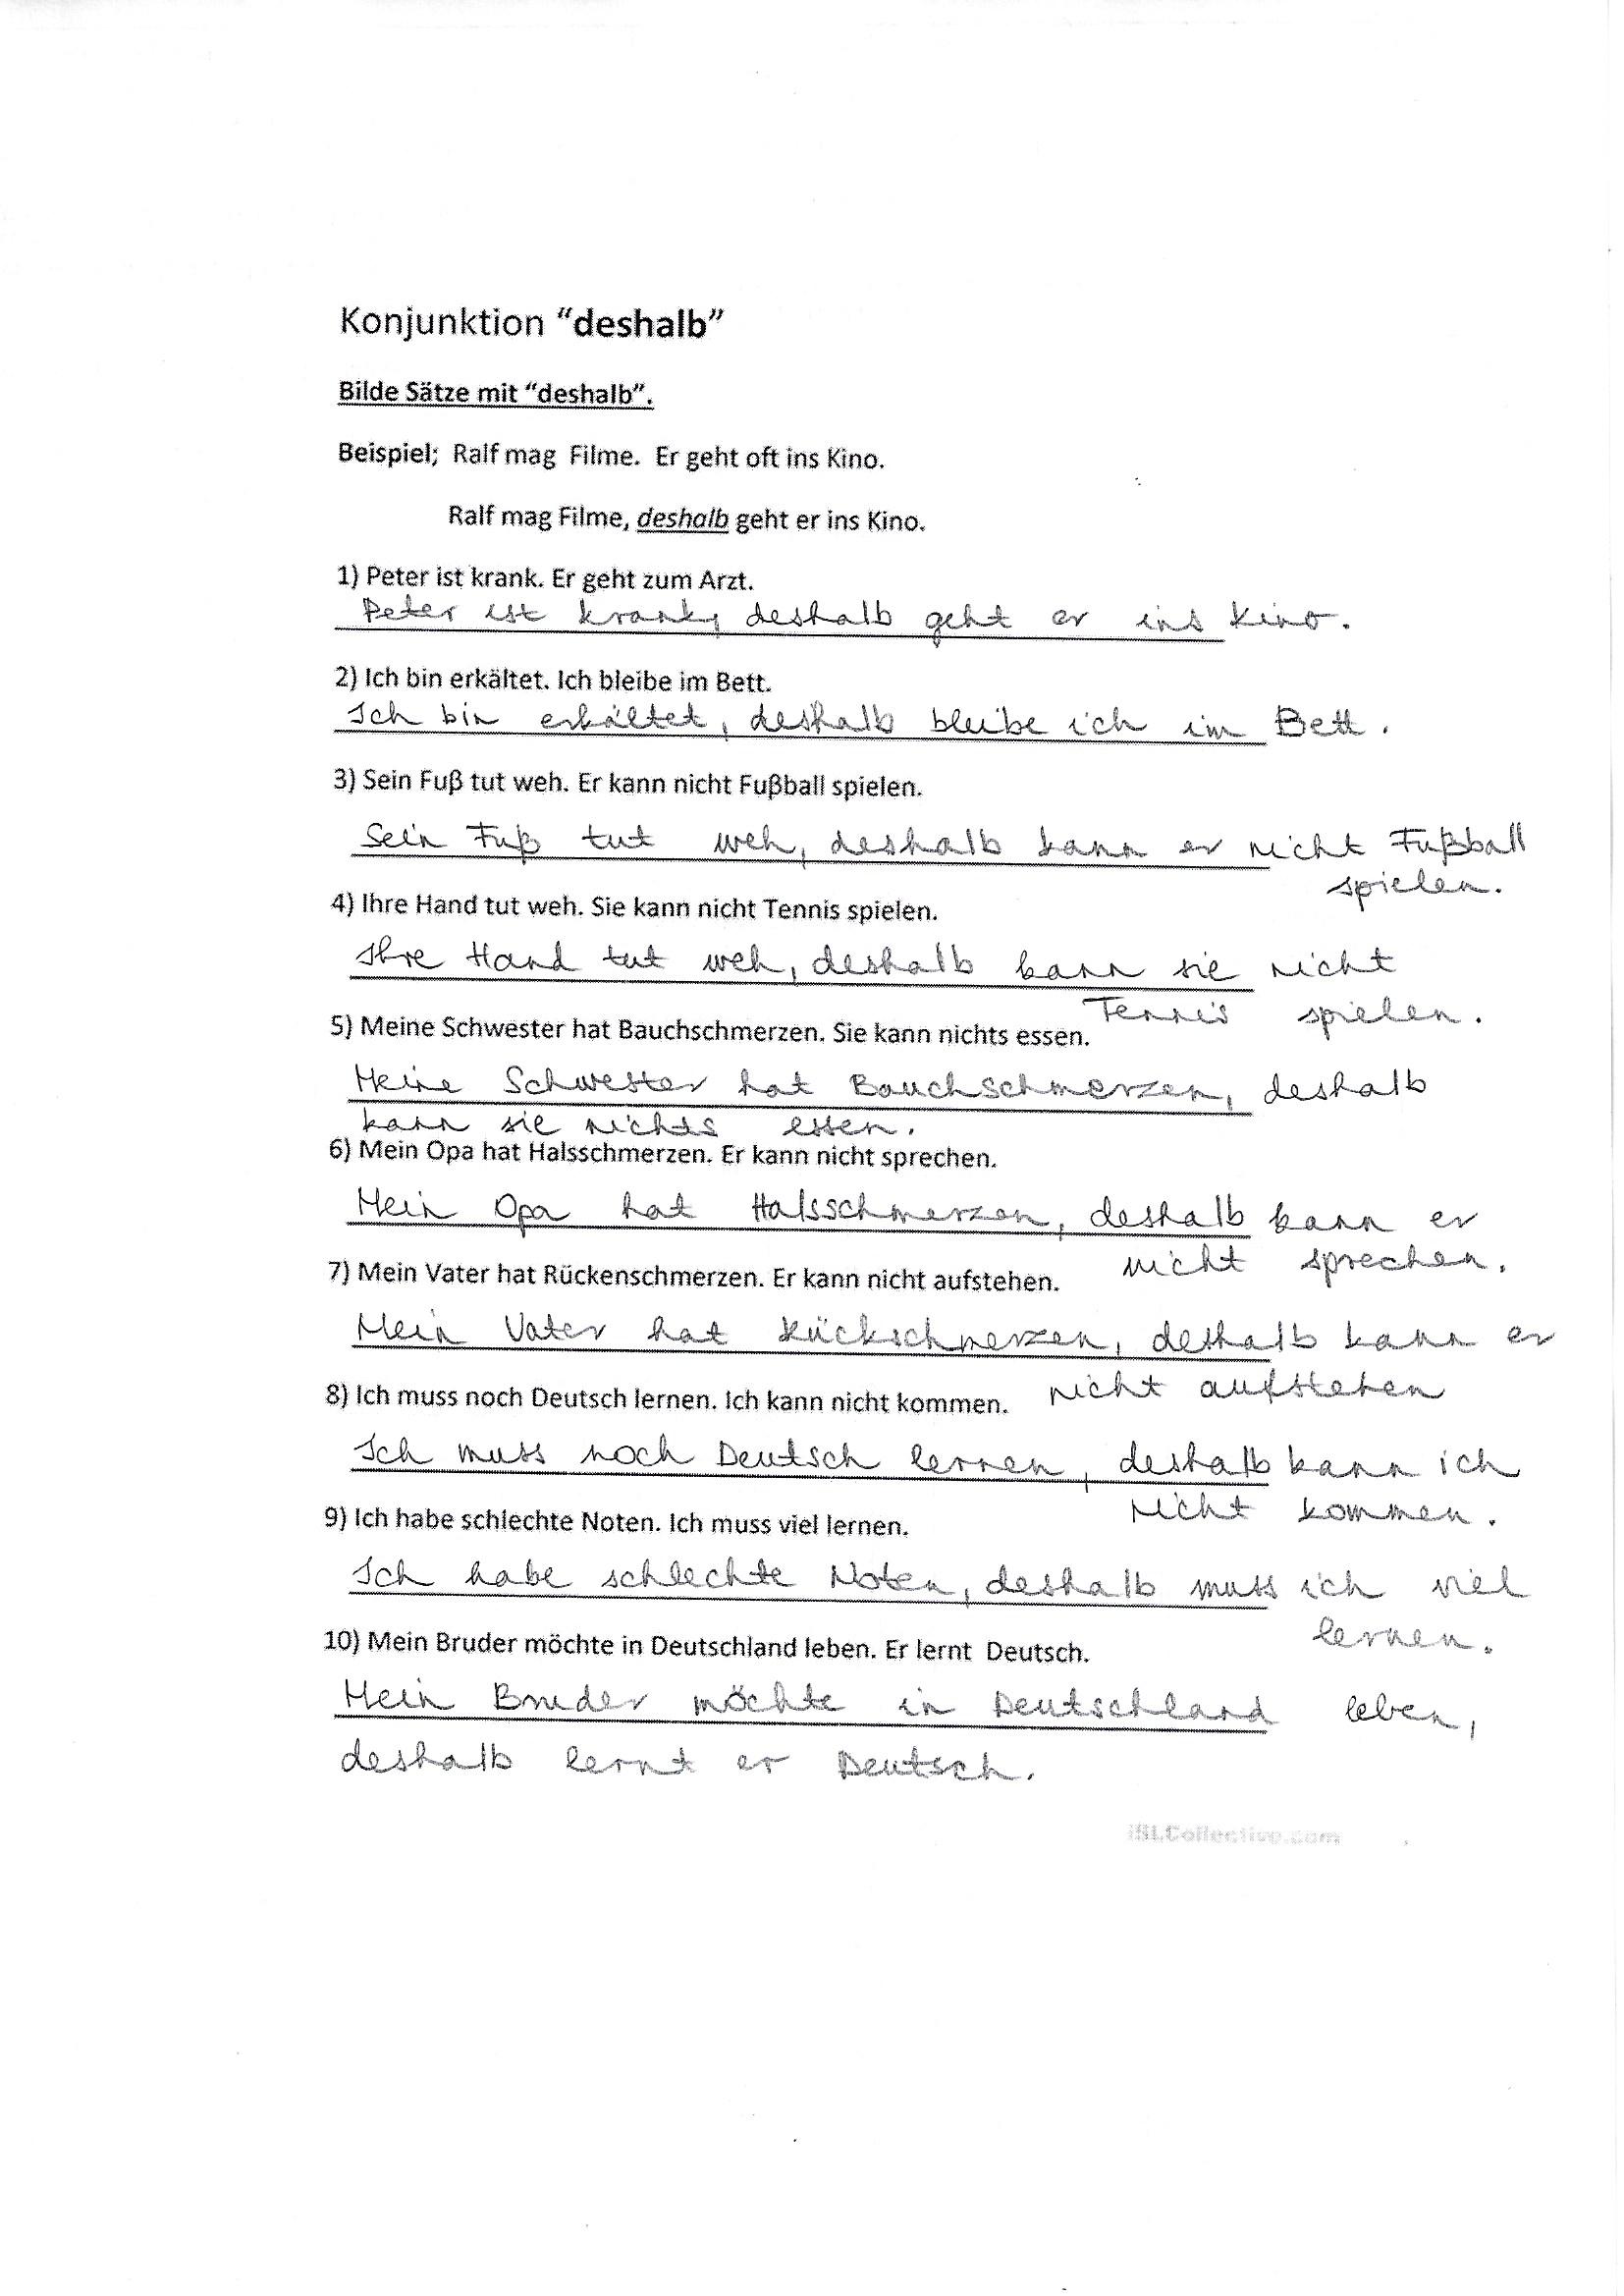 Konjunktion “deshalb”
Bilde Sätze mit “deshalb”.
Beispiel; Ralf mag Filme. Er geht oft ins Kino.
Ralf mag Filme, deshalb geht er ins Kino.
1) Peter ist krank. Er geht zum Arzt.
Peter ist krank, deshalb geht er ins Kino.
2) Ich bin erkältet. Ich bleibe im Bett.
Ich bin erkältet, deshalb bleibe ich im Bett.
3) Sein Fuß tut weh. Er kann nicht Fußball spielen.
Sein Fuß tut weh, deshalb kann er nicht Fußball
spielen.
4) Ihre Hand tut weh. Sie kann nicht Tennis spielen.
Ihre Hand tut weh, deshalb kann sie nicht
Tennis spielen.
5) Meine Schwester hat Bauchschmerzen. Sie kann nichts essen.
Meine Schwester hat Bauchschmerzen, deshalb
kann sie nichts essen.
6) Mein Opa hat Halsschmerzen. Er kann nicht sprechen.
Mein Opa hat Halsschmerzen, deshalb kann er
nicht sprechen.
7) Mein Vater hat Rückenschmerzen. Er kann nicht aufstehen.
Mein Vater hat Rückschmerzen, deshalb kann er
nicht aufstehen
8) Ich muss noch Deutsch lernen. Ich kann nicht kommen.
Ich muss noch Deutsch lernen, deshalb kann ich
nicht kommen.
9) Ich habe schlechte Noten. Ich muss viel lernen.
Ich habe schlechte Noten, deshalb muss ich viel
lernen.
10) Mein Bruder möchte in Deutschland leben. Er lernt Deutsch.
Mein Bruder möchte in Deutschland leben,
deshalb lernt er Deutsch.
iSLCollective.com